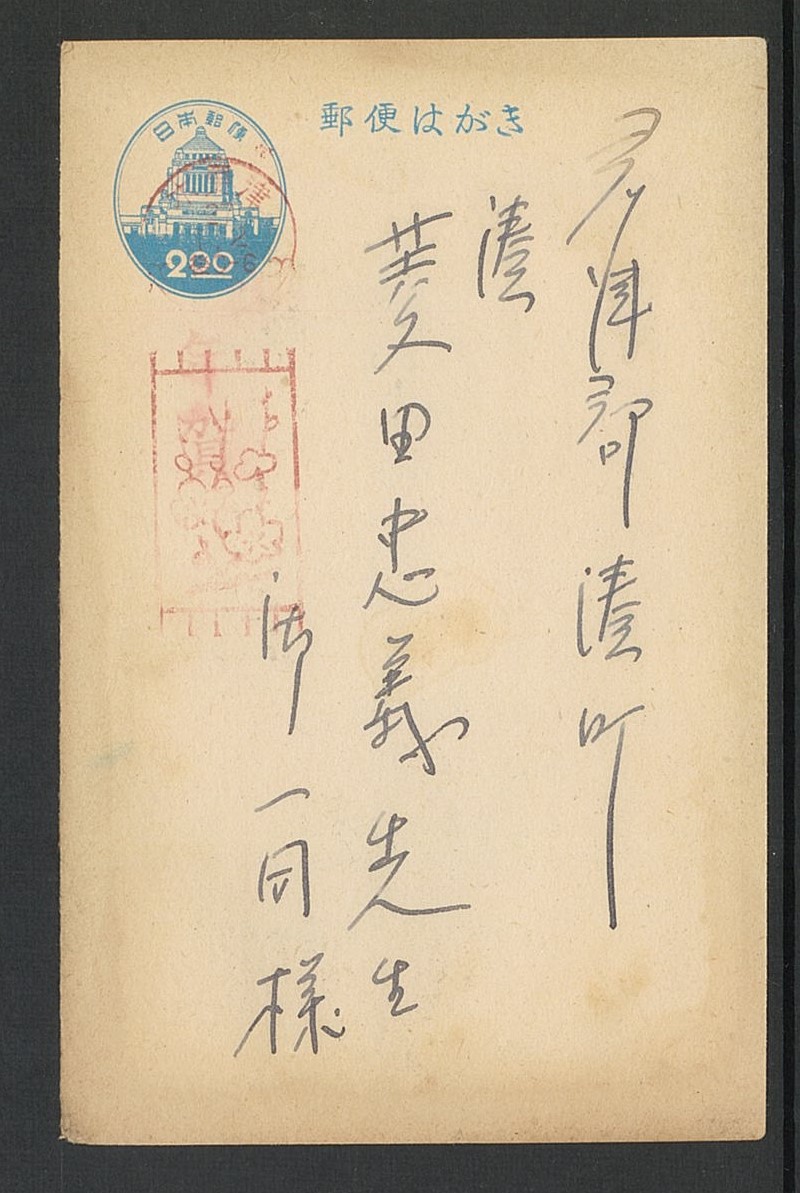 郵便はがき
日本郵便
2.00
津
年賀
君津郡湊町
湊
菱田忠義先生
御一同様